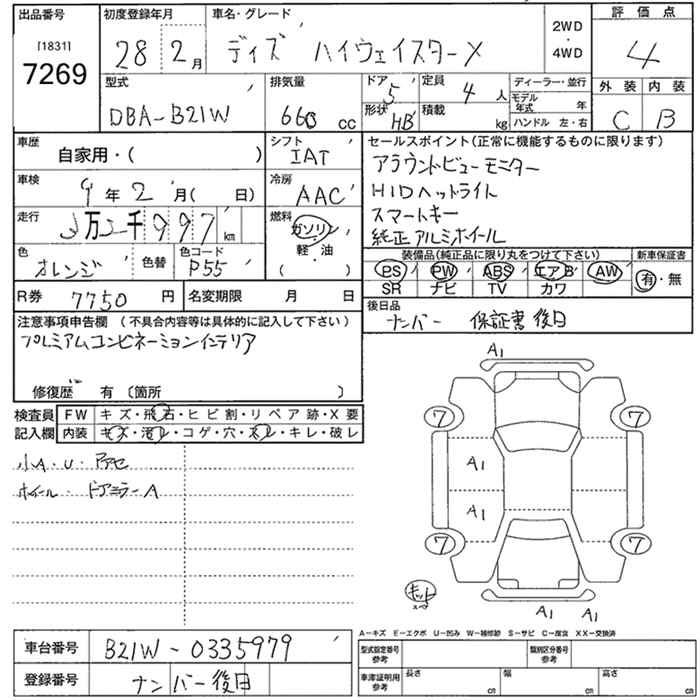 出品番号 初度登録年月 車名・グレード 2WD ・ 4WD 評価点
[1831] 7269 28 2月 ディズ ハイウェイスターX 4
型式 排気量 ドア 5 定員 4人 ディーラー・並行 外装 内装
DBA-B21W 660 cc 形状 HB 積載 kg モデル年式 年 C B
ハンドル 左・右
車歴 自家用・( ) シフト IAT セールスポイント(正常に機能するものに限ります)
アラウンドビューモニター
車検 9年2月( 日) 冷房 AAC HIDヘットライト
スマートキー
走行 3万2千997km 燃料 ガソリン・軽・油 純正アルミホイール
色 オレンジ 色替 色コード P55 装備品(純正品に限り丸をつけて下さい) 新車保証書
PS PW ABS エアB AW 有・無
SR ナビ TV カワ
R券 7750円 名変期限 月 日 後日品
ナンバー 保証書後日
注意事項申告欄 (不具合内容等は具体的に記入して下さい)
プレミアムコンビネーションインテリア
修復歴 有〔箇所 〕
検査員 FW キズ・飛石・ヒビ割・リペア跡・X要
記入欄 内装 キズ・汚レ・コゲ・穴・スレ・キレ・破レ
小A・U・アセ
ホイール・ドアミラーA
A1
7 7
A1
A1
7 7
キット スペ
A1 A1
A-キズ E-エクボ U-凹み W-補修跡 S-サビ C-腐食 XX-交換済
車台番号 B21W-0335979 型式指定番号 参考 類別区分番号 参考
登録番号 ナンバー後日 車庫証明用 参考 長さ cm 幅 cm 高さ cm